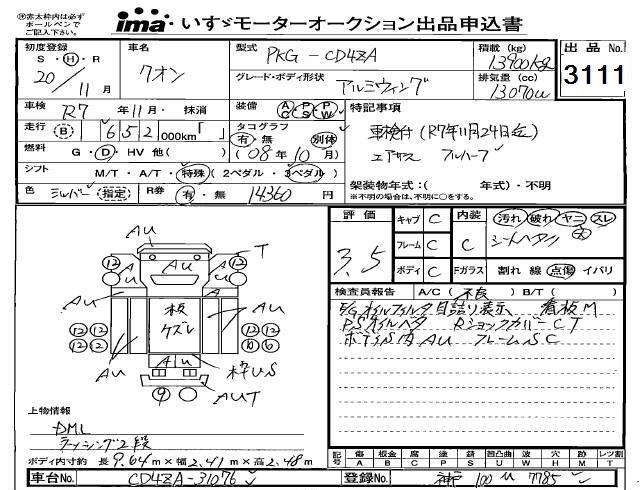 ㊟赤太枠内は必ず
ボールペンで
ご記入下さい。
ima いすゞモーターオークション出品申込書
初度登録 車名 型式 PKG-CD4ZA 積載(kg) 13900kg 出品No.
S・H・R 20/11月 クオン グレード・ボディ形状 アルミウィング 排気量(cc) 13070cc 3111
車検 R7年11月・抹消 装備 AC PS PW 特記事項
走行 (B) 652 000km「 」 タコグラフ 有・無 別体 車検付(R7年11月24日迄)
燃料 G・D・HV 他( ) (08年10月) エアサス フルハーフ
シフト M/T・A/T・特殊(2ペダル・3ペダル) 架装物年式:( 年式)・不明
色 シルバー 指定 R券 有・無 14360円 ※不明の場合は、不明に○をする。
評価 3.5 キャブ C 内装 C 汚れ 破れ ヤニ スレ
フレーム C シートヘタリ
ボディ C Fガラス 割れ 線 点傷 イバリ
検査員報告 A/C(不良) B/T( )
E/Gオイルフィルタ目詰り表示、看板M
P.Sオイルヘタ RショックカバーCT
ボデS内AU フレームSC
AU
T
12 AU AU AU 12
AU AU AU
板ケズレ
12 12 12 12
12 12
AU AU 枠US
9 AUT
上物情報
DML
ラッシング2段
ボディ内寸約 長9.64m×幅2.41m×高2.48m
記号 傷A 板金B 腐C 塗P 錆S 凹凸曲U 波W 穴H 跡M レツ割T
車台No. CD4ZA-31076 登録No. 神戸 100 い 7785